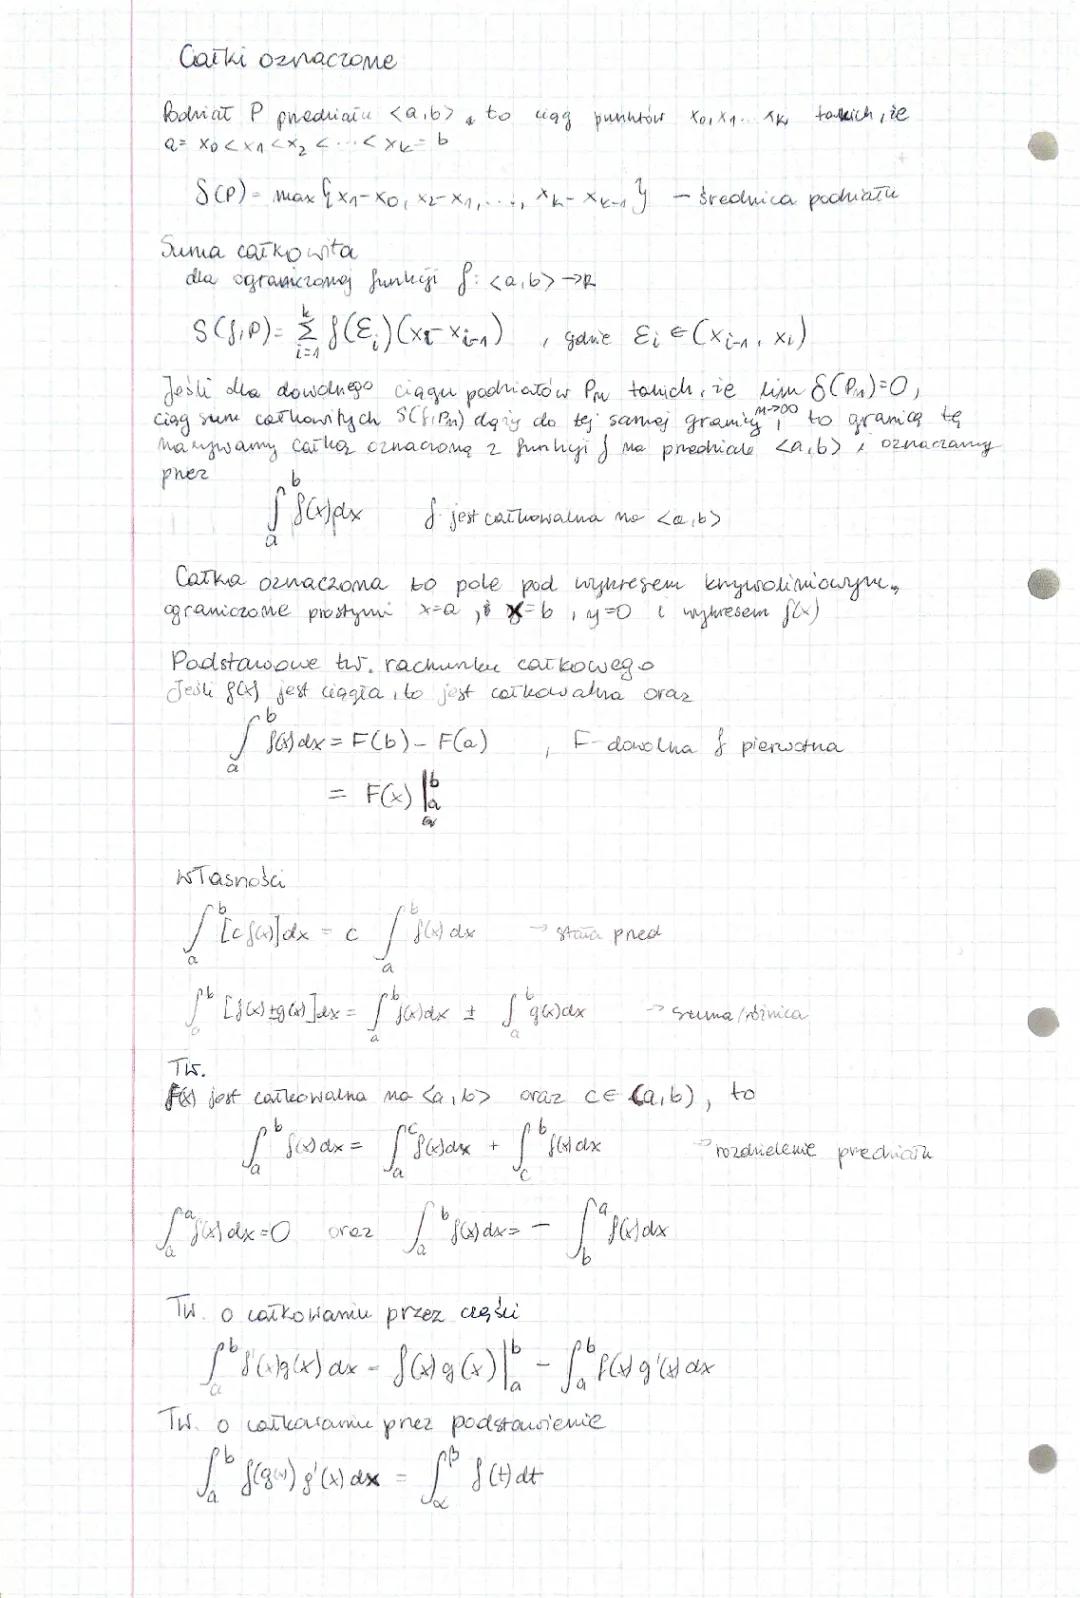 Całki oznaczone
Podział P przedziału <a,b>, to ciąg punktów x₀, x₁... xₖ takich, że
a = x₀ < x₁ < x₂ < ... < xₖ = b
δ(P) = max {x₁-x₀, x₂-x₁, ..., xₖ-xₖ₋₁} - średnica podziału
Suma całkowita
dla ograniczonej funkcji f: <a,b> → R
S(f,P) = ∑ᵢ₌₁ᵏ f(Ɛᵢ)(xᵢ-xᵢ₋₁) , gdzie Ɛᵢ ∈ (xᵢ₋₁, xᵢ)
Jeśli dla dowolnego ciągu podziałów Pₙ takich, że lim n→∞ δ(Pₙ)=0,
ciąg sum całkowitych S(f,Pₙ) dąży do tej samej granicy, to granicę tę
nazywamy całką oznaczoną z funkcji f na przedziale <a,b>, oznaczamy
przez
∫ₐᵇ f(x)dx f jest całkowalna na <a,b>
Całka oznaczona to pole pod wykresem krzywoliniowym,
ograniczone prostymi x=a, x=b, y=0 i wykresem f(x)
Podstawowe tw. rachunku całkowego
Jeśli f(x) jest ciągła, to jest całkowalna oraz
∫ₐᵇ f(x)dx = F(b) - F(a) , F-dowolna f pierwotna
= F(x) |ₐᵇ
Własności
∫ₐᵇ [cf(x)]dx = c ∫ₐᵇ f(x)dx → stała przed
∫ₐᵇ [f(x)±g(x)]dx = ∫ₐᵇ f(x)dx ± ∫ₐᵇ g(x)dx → suma/różnica
Tw.
f(x) jest całkowalna na <a,b> oraz c∈(a,b), to
∫ₐᵇ f(x)dx = ∫ₐᶜ f(x)dx + ∫꜀ᵇ f(x)dx → rozdzielenie przedziału
∫ₐᵃ f(x)dx=0 oraz ∫ₐᵇ f(x)dx = - ∫_b^a f(x)dx
Tw. o całkowaniu przez części
∫ₐᵇ f'(x)g(x)dx = f(x)g(x)|ₐᵇ - ∫ₐᵇ f(x)g'(x)dx
Tw. o całkowaniu przez podstawienie
∫ₐᵇ f(g(x))g'(x)dx = ∫_α^β f(t)dt